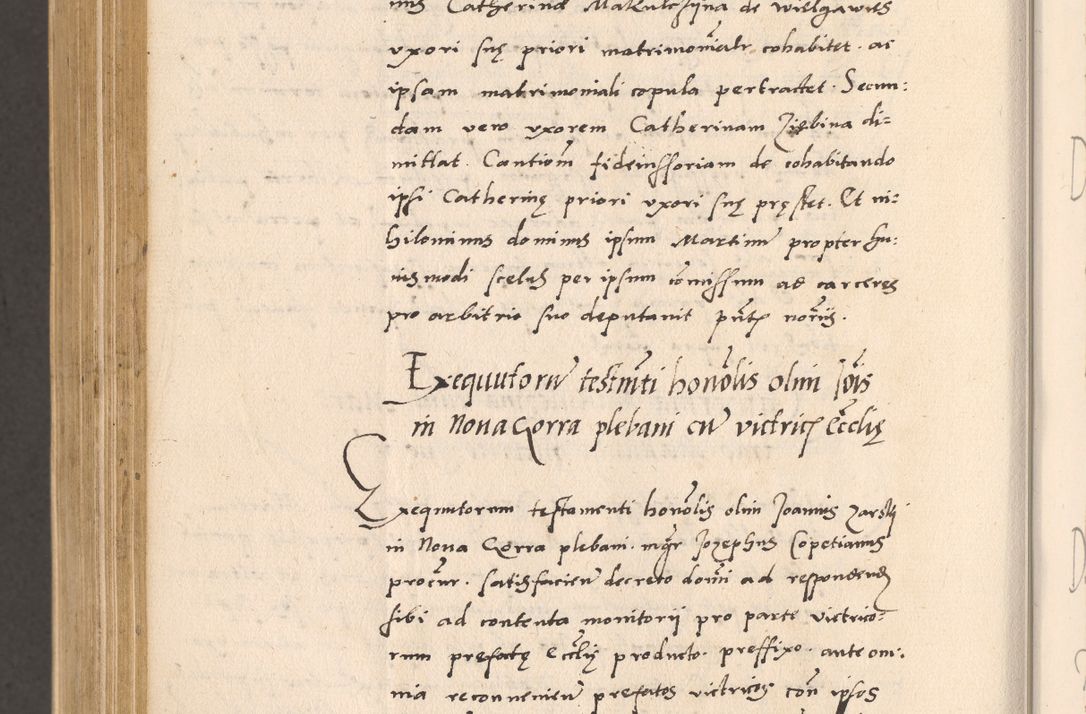 nus Catherinę Makulczyna de Wielgawies
uxori suę priori matrimonialr cohabitet. ac
ipsam matrimoniali copula pertractet. Secun:
dam vero uxorem Catherinam Ziębina di=
mittat. Cautiom fideiussoriam de cohabitando
ipsi Catherinę priori uxori suę pręstet. Et ni=
hilominus dominus ipsum Martinu propter hu:
iusmodi scelus per ipsum comissum ad carceres
pro arbitrio suo deputavit pntz noriis.
Exequutoru testmti honolis olim Jois
in Nova Gorra plebani cu victric Ecclię
Exequutorum testamenti honolis olim Joannis Zarski
in Nova Gorra plebani. mgr Jozephus Copetianus
procur. satisfacien decreto domi ad respondend
sibi ad contenta monitorii pro parte victrico=
rum prefatę Ecclię producto. preffixo. ante om:
nia reconvenien prefatos victricos con ipsos